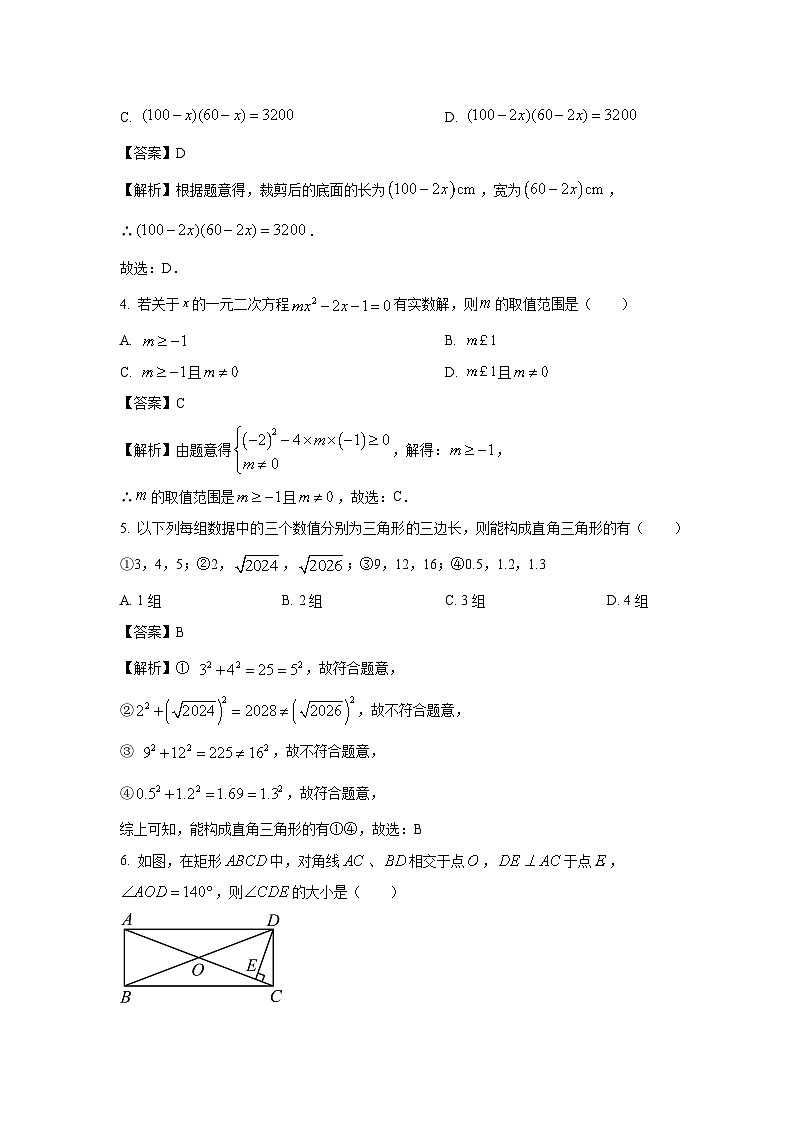 C. (100 − x)(60 − x) = 3200 D. (100 − 2x)(60 − 2x) = 3200
【答案】D
【解析】根据题意得，裁剪后的底面的长为(100 − 2x)cm，宽为(60 − 2x)cm，
∴(100 − 2x)(60 − 2x) = 3200．
故选：D．
4. 若关于x的一元二次方程mx² − 2x − 1 = 0有实数解，则m的取值范围是（ ）
A. m ≥ −1 B. m £ 1
C. m ≥ −1且m ≠ 0 D. m £ 1且m ≠ 0
【答案】C
【解析】由题意得{(−2)² − 4×m×(−1) ≥ 0
m ≠ 0，解得：m ≥ −1，
∴m的取值范围是m ≥ −1且m ≠ 0，故选：C．
5. 以下列每组数据中的三个数值分别为三角形的三边长，则能构成直角三角形的有（ ）
①3，4，5；②2，√2024，√2026；③9，12，16；④0.5，1.2，1.3
A. 1组 B. 2组 C. 3组 D. 4组
【答案】B
【解析】① 3² + 4² = 25 = 5²，故符合题意，
②2² + (√2024)² = 2028 ≠ (√2026)²，故不符合题意，
③ 9² + 12² = 225 ≠ 16²，故不符合题意，
④0.5² + 1.2² = 1.69 = 1.3²，故符合题意，
综上可知，能构成直角三角形的有①④，故选：B
6. 如图，在矩形ABCD中，对角线AC、BD相交于点O，DE ⊥ AC于点E，
∠AOD = 140°，则∠CDE的大小是（ ）
A D
O E
B C